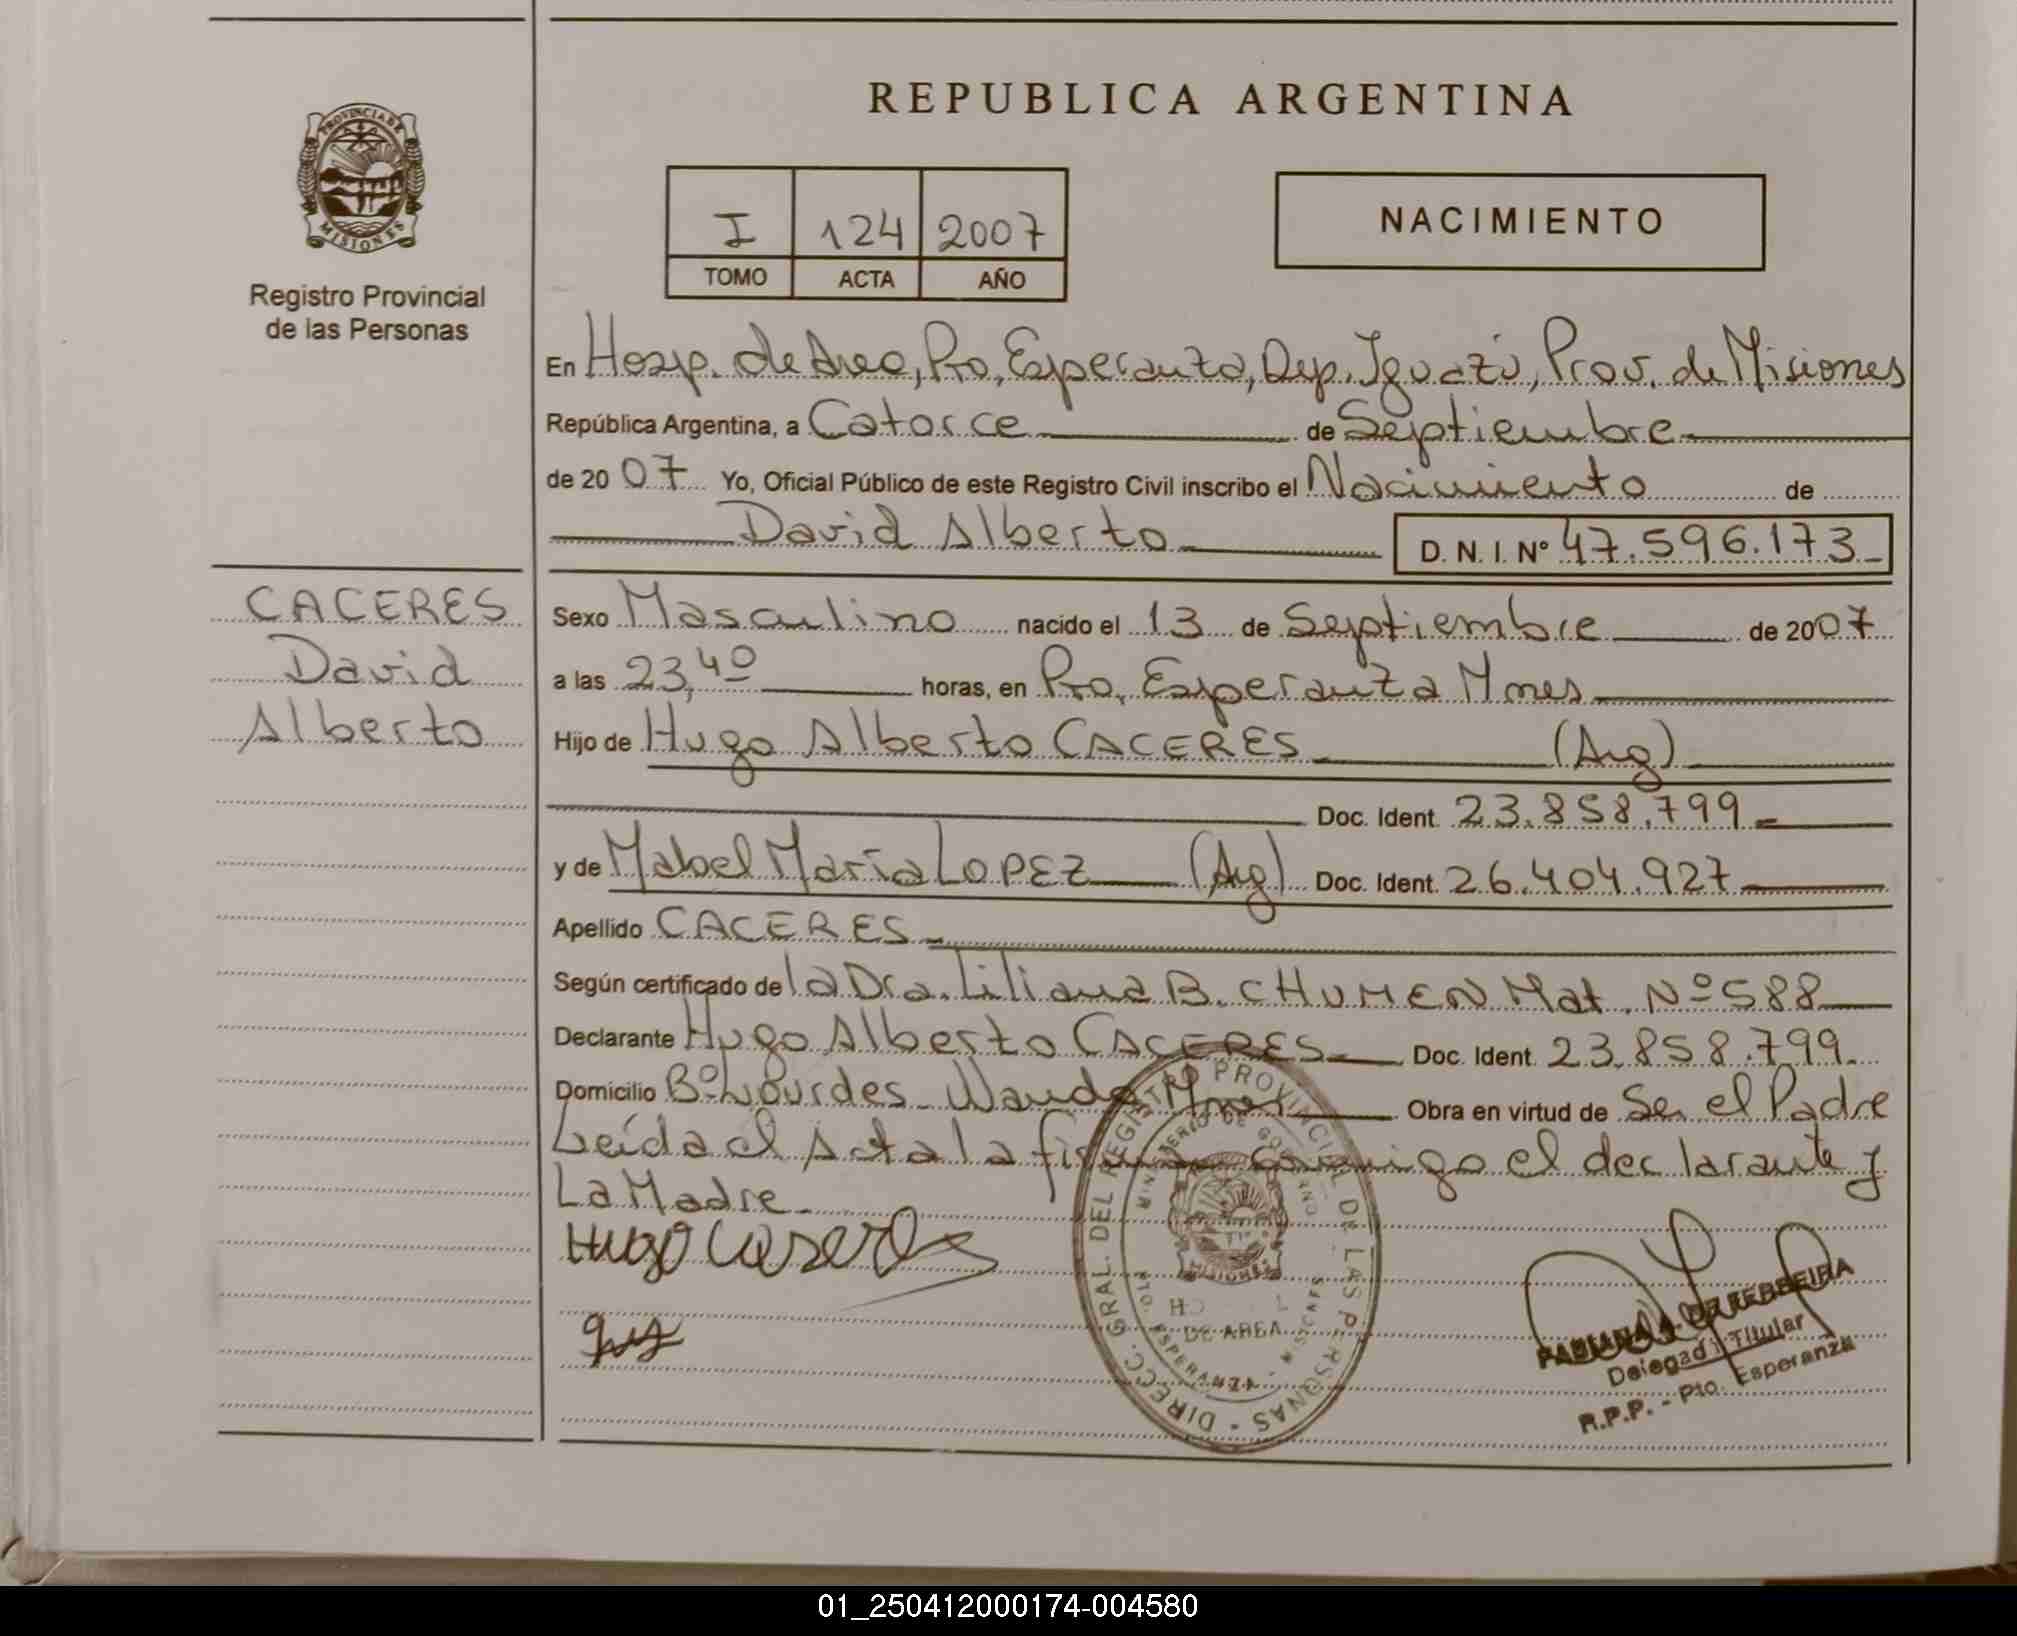 REPUBLICA ARGENTINA
PROVINCIA DE
MISIONES
Registro Provincial
de las Personas
I 124 2007
TOMO ACTA AÑO
NACIMIENTO
En Hosp. de Area, Pto. Esperanza, Dep. Iguazú, Prov. de Misiones
República Argentina, a Catorce de Septiembre
de 2007 Yo, Oficial Público de este Registro Civil inscribo el Nacimiento de
David Alberto D. N. I. Nº 47.596.173
CACERES
David
Alberto
Sexo Masculino nacido el 13 de Septiembre de 2007
a las 23,40 horas, en Pto. Esperanza Mnes
Hijo de Hugo Alberto CACERES (Arg)
Doc. Ident. 23.858.799
y de Mabel María LOPEZ (Arg) Doc. Ident. 26.404.927
Apellido CACERES
Según certificado de la Dra. Liliana B. CHUMEN Mat. Nº 588
Declarante Hugo Alberto CACERES Doc. Ident. 23.858.799
Domicilio Bº Lourdes - Wanda Mnes Obra en virtud de Ser el Padre
Leída el Acta la firma conmigo el declarante y
La Madre
Hugo Caseres
DIRECC. GRAL. DEL REGISTRO PROVINCIAL DE LAS PERSONAS
MINISTERIO DE GOBIERNO
MISIONES
DE AREA
PTO. ESPERANZA - MISIONES
DE FERREIRA
Delegada Titular
R.P.P. - Pto. Esperanza
01_250412000174-004580